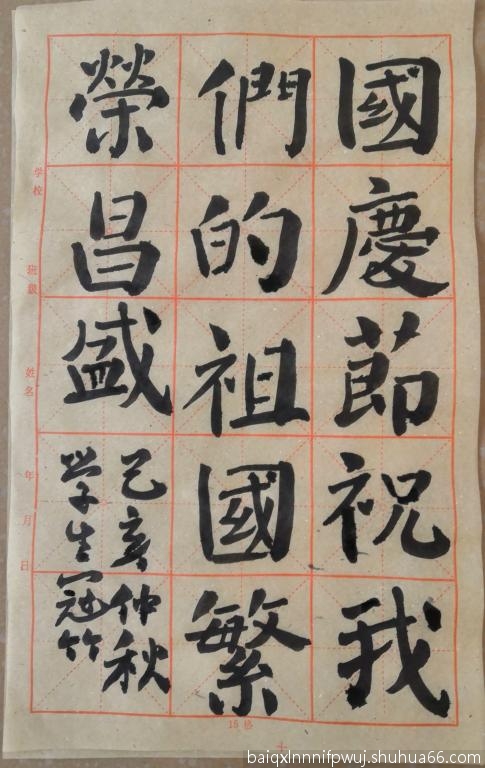 國慶節祝我
們的祖國繁
榮昌盛
己亥仲秋
学生冠竹
学校
班級
姓名
年月日
15格
baiqxlnnnifpwuj.shuhua66.com